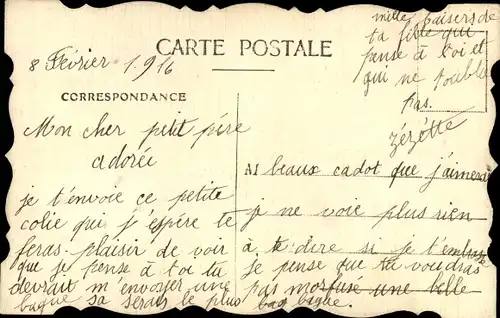 mille baisers de
ta fille qui
pense à toi et
qui ne t'oublie
pas.
zézétte
CARTE POSTALE
8 Février 1916
CORRESPONDANCE
Mon cher petit père
adorée
je t'envoie ce petite
colie qui j'espére te
feras plaisir de voir
que je pense à toi tu
devrait m'envoyer une
bague sa serais le plus
beaux cadot que j'aimerai
je ne voie plus rien
à te dire si je t'embrasse
je pense que tu voudras
pas une belle
bague.